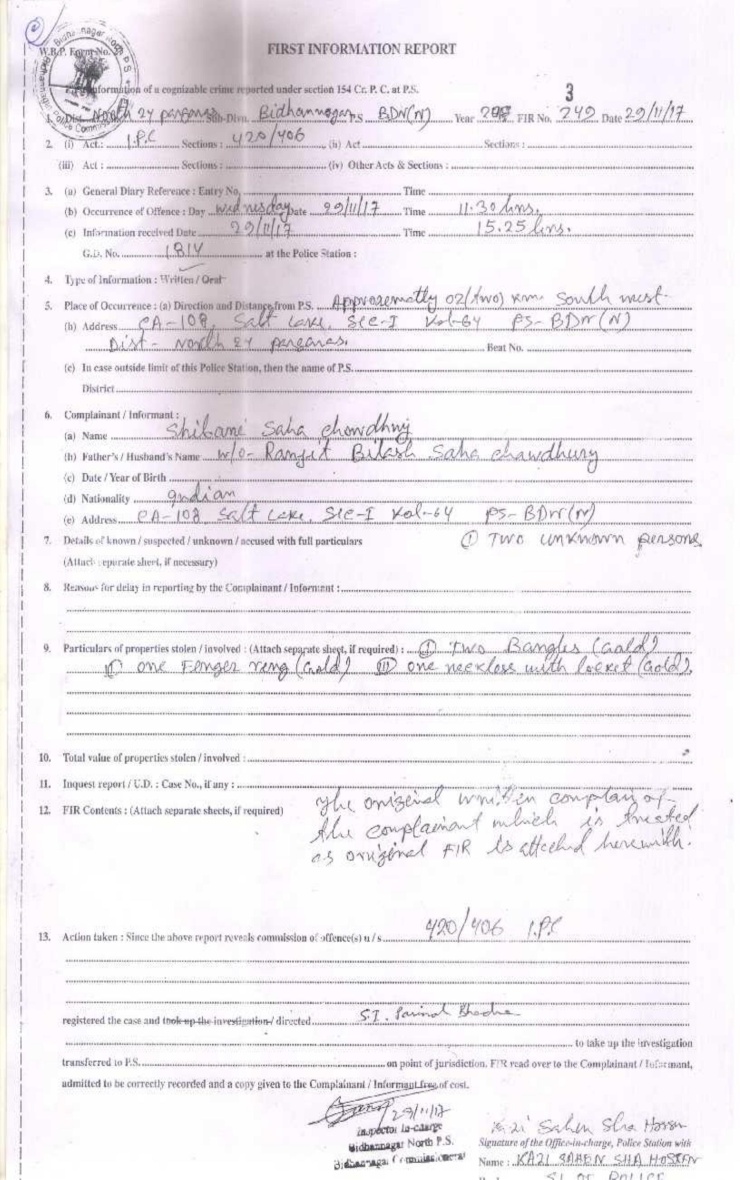 W.B.P. Form No.
FIRST INFORMATION REPORT
Information of a cognizable crime reported under section 154 Cr. P. C. at P.S.
3
1. Dist. North 24 parganas Sub-Divn. Bidhannagar P.S BDN(N) Year FIR No. 249 Date 29/11/17
2. (i) Act.: I.P.C Sections : 420/406 (ii) Act Sections :
(iii) Act : Sections : (iv) Other Acts & Sections :
3. (a) General Diary Reference : Entry No. Time
(b) Occurrence of Offence : Day wednesday Date 29/11/17 Time 11.30 hrs.
(c) Information received Date 29/11/17 Time 15.25 hrs.
G.D. No. 1814 at the Police Station :
4. Type of Information : Written / Oral
5. Place of Occurrence : (a) Direction and Distance from P.S. Approxematly 02(two) Km. South west.
(b) Address CA-108, Salt Lake, Sec-I Kol-64 PS-BDN(N)
Dist- North 24 parganas. Beat No.
(c) In case outside limit of this Police Station, then the name of P.S.
District
6. Complainant / Informant :
(a) Name Shibani Saha chowdhury
(b) Father's / Husband's Name w/o- Ranjit Bilash Saha chawdhury
(c) Date / Year of Birth
(d) Nationality Indian
(e) Address CA-108 Salt Lake, Sec-I Kol-64 PS-BDN(N)
7. Details of known / suspected / unknown / accused with full particulars (I) Two unknown persons
(Attach separate sheet, if necessary)
8. Reasons for delay in reporting by the Complainant / Informant :
9. Particulars of properties stolen / involved : (Attach separate sheet, if required) : (I) Two Bangles (Gold)
(II) one Fenger reng (Gold) (III) one neckless with locket (Gold).
10. Total value of properties stolen / involved :
11. Inquest report / U.D. : Case No., if any :
12. FIR Contents : (Attach separate sheets, if required) The original written complain of
the complainant which is treated
as original FIR is attached herewith.
13. Action taken : Since the above report reveals commission of offence(s) u / s 420/406 I.P.C
registered the case and took up the investigation / directed S.I. Parimal
to take up the investigation
transferred to P.S. on point of jurisdiction. FIR read over to the Complainant / Informant,
admitted to be correctly recorded and a copy given to the Complainant / Informant free of cost.
29/11/17
Inspector In-charge
Bidhannagar North P.S.
Bidhannagar Commissionerat
Kazi Sahen Sha Hossen
Signature of the Office-in-charge, Police Station with
Name : KAZI SAHEN SHA HOSSEN
SI OF POLICE